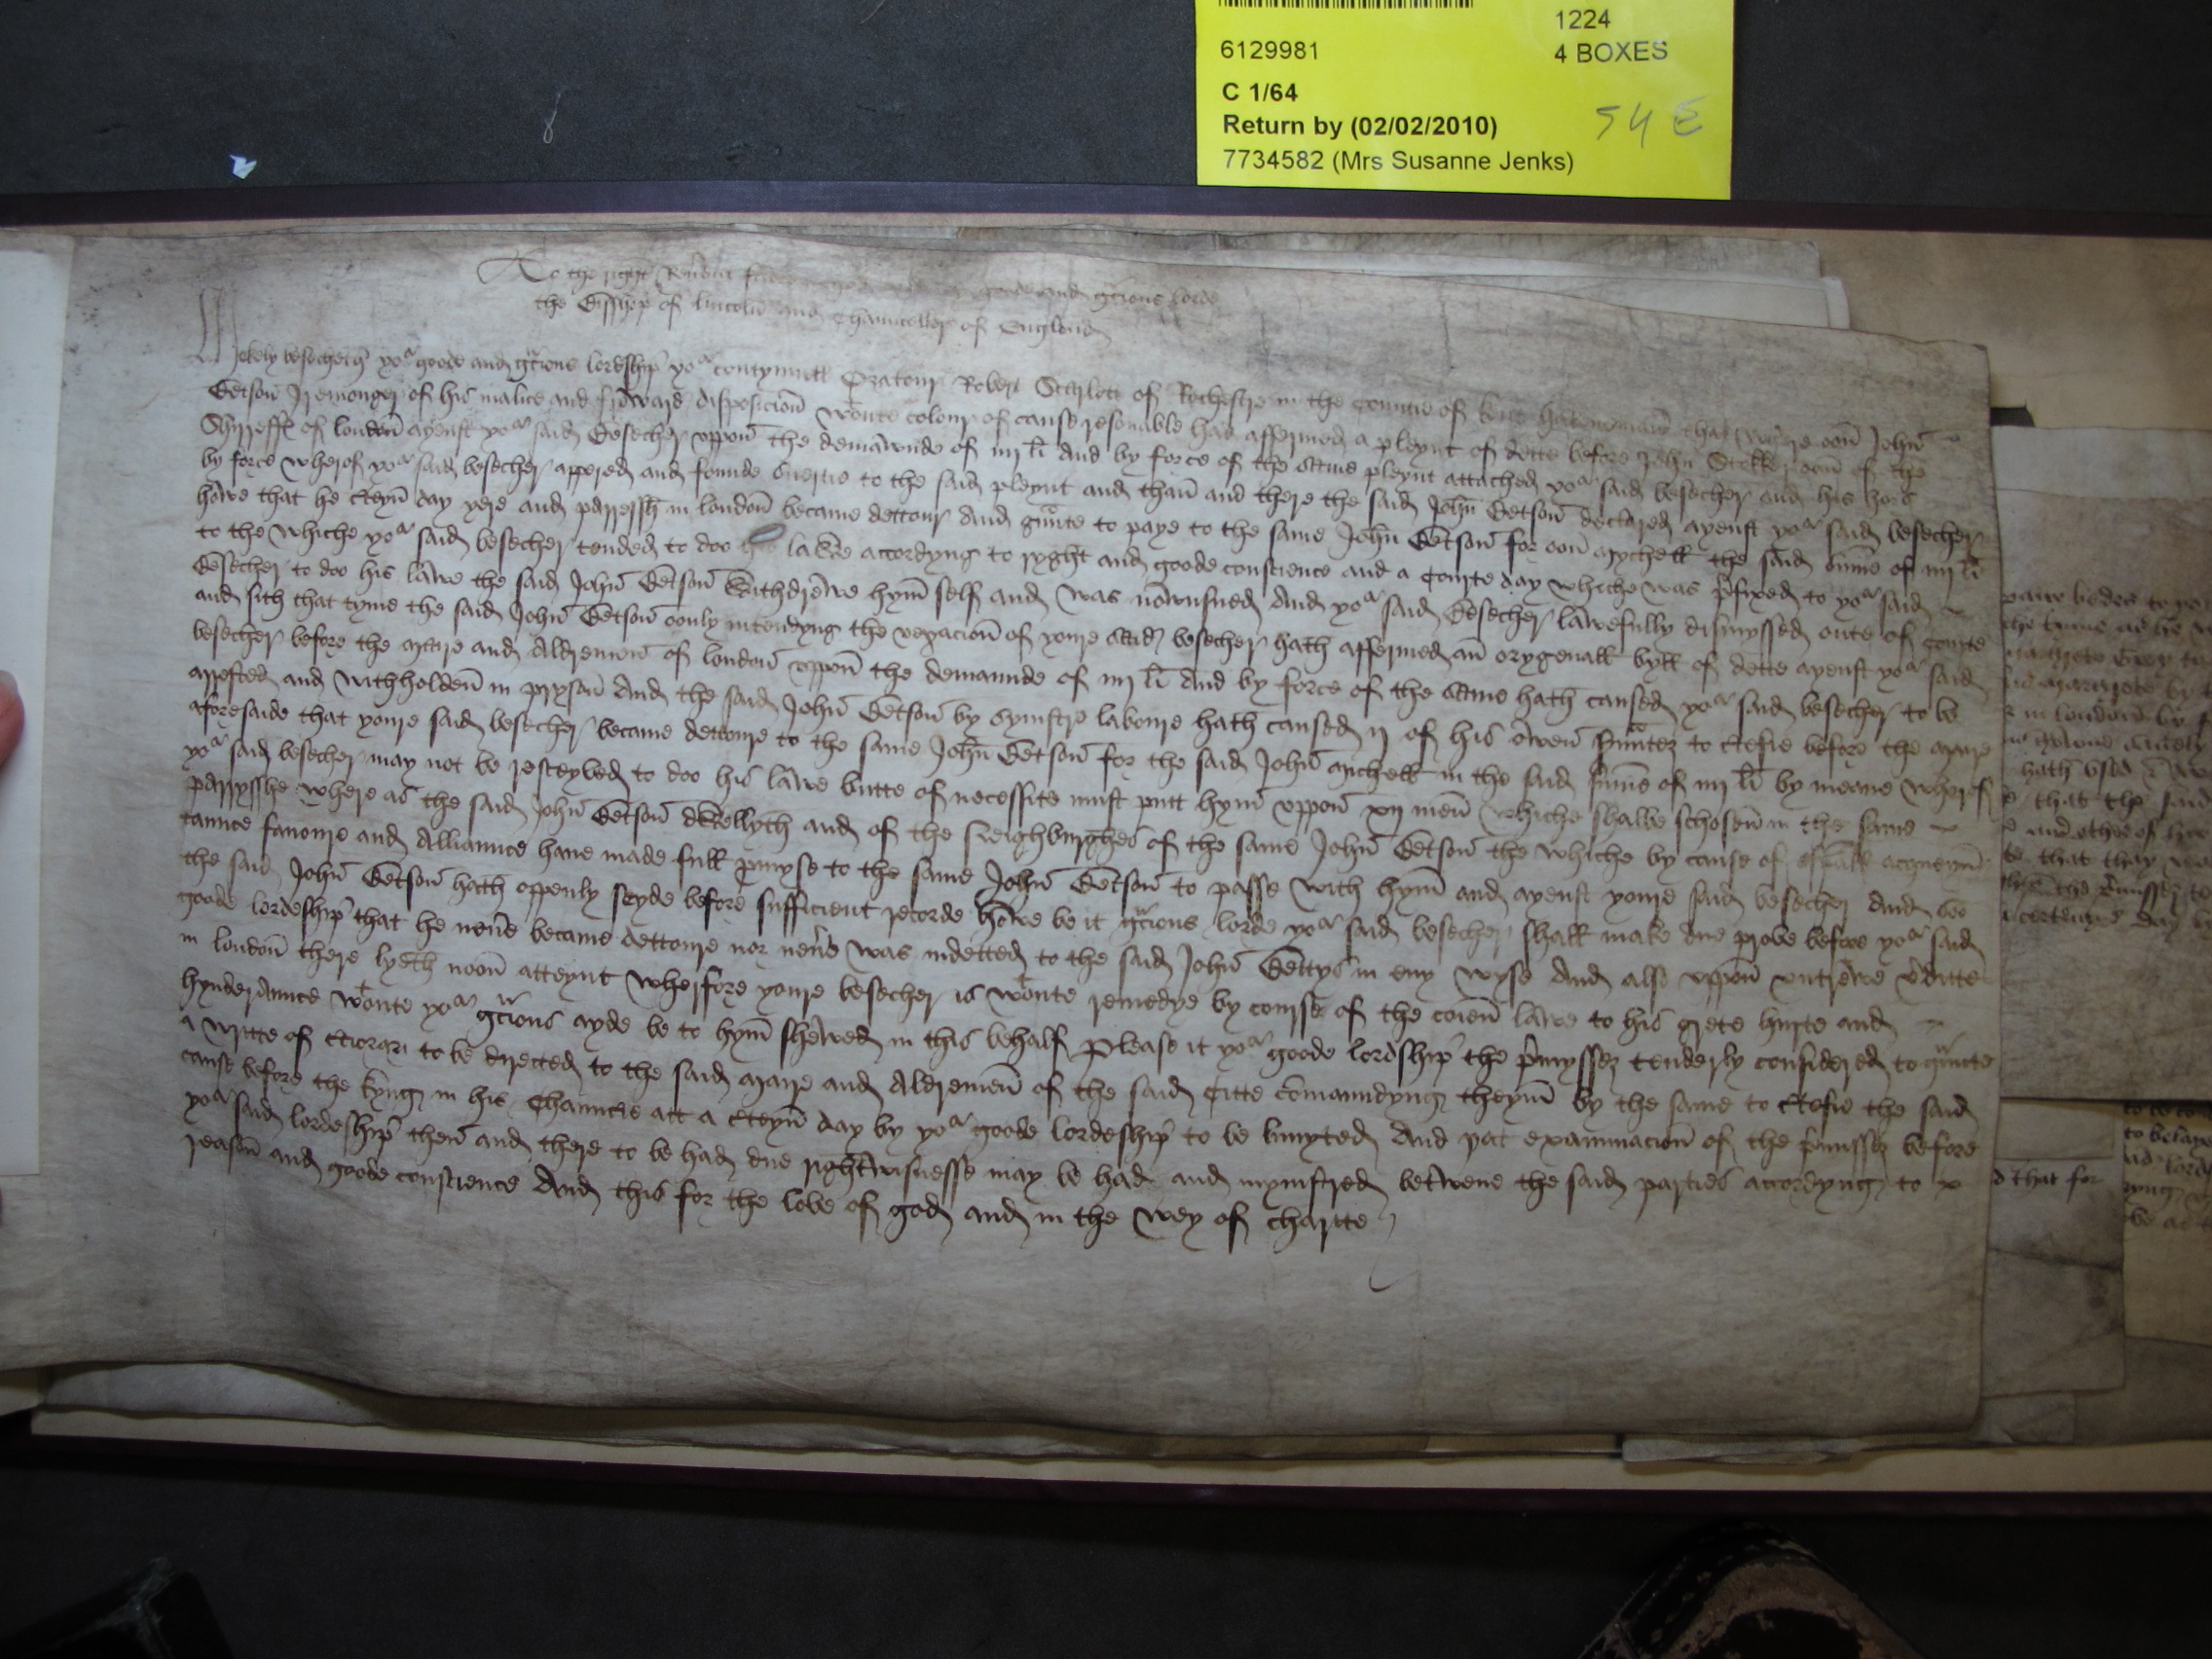 1224
6129981 4 BOXES
C 1/64
Return by (02/02/2010) 54 E
7734582 (Mrs Susanne Jenks)
To the right and gcious lorde
the Bisshop of lincoln and Chaunceller of Englond
Mekely besecheth yor goode and gcious lordship yor contynuell Oratour Robert Scarlett of Rochestre in the Countie of Kent that where oon John
Betson Iremonger of his malice and froward disposicion wtoute colour of cause resonable had affermed a pleynt of dette before John Stokker oon of the
Shireffs of london ayenst yor said Besecher uppon the demaunde of iiij li And by force of the same pleynt attached yor said besecher and his hors
by force wherof yor said besecher appered and founde suertie to the said pleynt and than and there the said John Betson declared ayenst yor said besecher
howe that he cteyn day yere and parressh in london became dettour and gunte to paye to the same John Betson for oon Mychell the said summe of iiij li
to the whiche yor said besecher tended to doo his lawe accordyng to ryght and goode conscience and a Courte day whiche was pfixed to yor said
Besecher to doo his lawe the said John Betson withdrewe hym self and was nownsued And yor said Besecher lawefully dismyssed oute of courte
and sith that tyme the said John Betson oonly intendyng the vexacion of youre said besecher hath affermed an orygenall byll of dette ayenst yor said
besecher before the Maire and Aldremen of london uppon the demaunde of iiij li And by force of the same hath caused yor said besecher to be
arrested and withholden in pryson And the said John Betson by synistre laboure hath caused ij of his owen to ctefie before the Mayre
aforesaide that youre said besecher became dettoure to the same John Betson for the said John Michell in the said summe of iiij li by meane wherof
yor said besecher may not be resceyved to doo his lawe butte of necessite must putt hym uppon xij men whiche shalbe schosen in the same
parysshe where as the said John Betson dwellyth and of the Neighburghes of the same John Betson the whiche by cause of espall acqueyn
taunce favoure and Alliaunce have made full pmyse to the same John Betson to passe with hym and ayenst youre said besecher And soo
the said John Betson hath oppenly seyde before sufficient recorde Howe be it gcious lorde yor said besecher shall make due probe before yor said
goode lordeship that he neve became dettoure nor neve was indetted to the said John Bettys in eny wyse And also uppon untrewe vditte
in london there lyeth noon atteynt wherfore youre besecher is wtoute remedye by course of the coien lawe to his grete hurte and
hynderaunce wtoute yor gcious ayde be to hym shewed in this behalf Please it yor goode lordship the pmyssez tenderly considered to gunte
a writte of cciorari to be directed to the said Maire and Aldremen of the said Citte comaundyng theym by the same to ctefie the said
cause before the kyng in his Chauncie att a cteyn day by yor goode lordeship to be lymyted And yat examinacion of the pmissez before
yor said lordeship then and there to be had due rightwisnesse may be had and mynistred betwene the said parties accordyng to
reason and goode conscience And this for the love of god and in the wey of charite